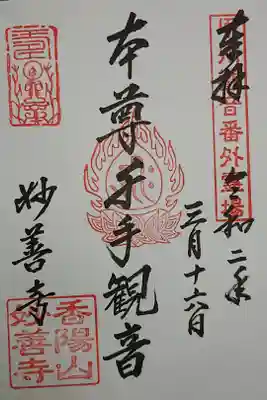 奉拝
令和二年
三月十六日
本尊千手観音
妙善寺
香陽山
妙善寺